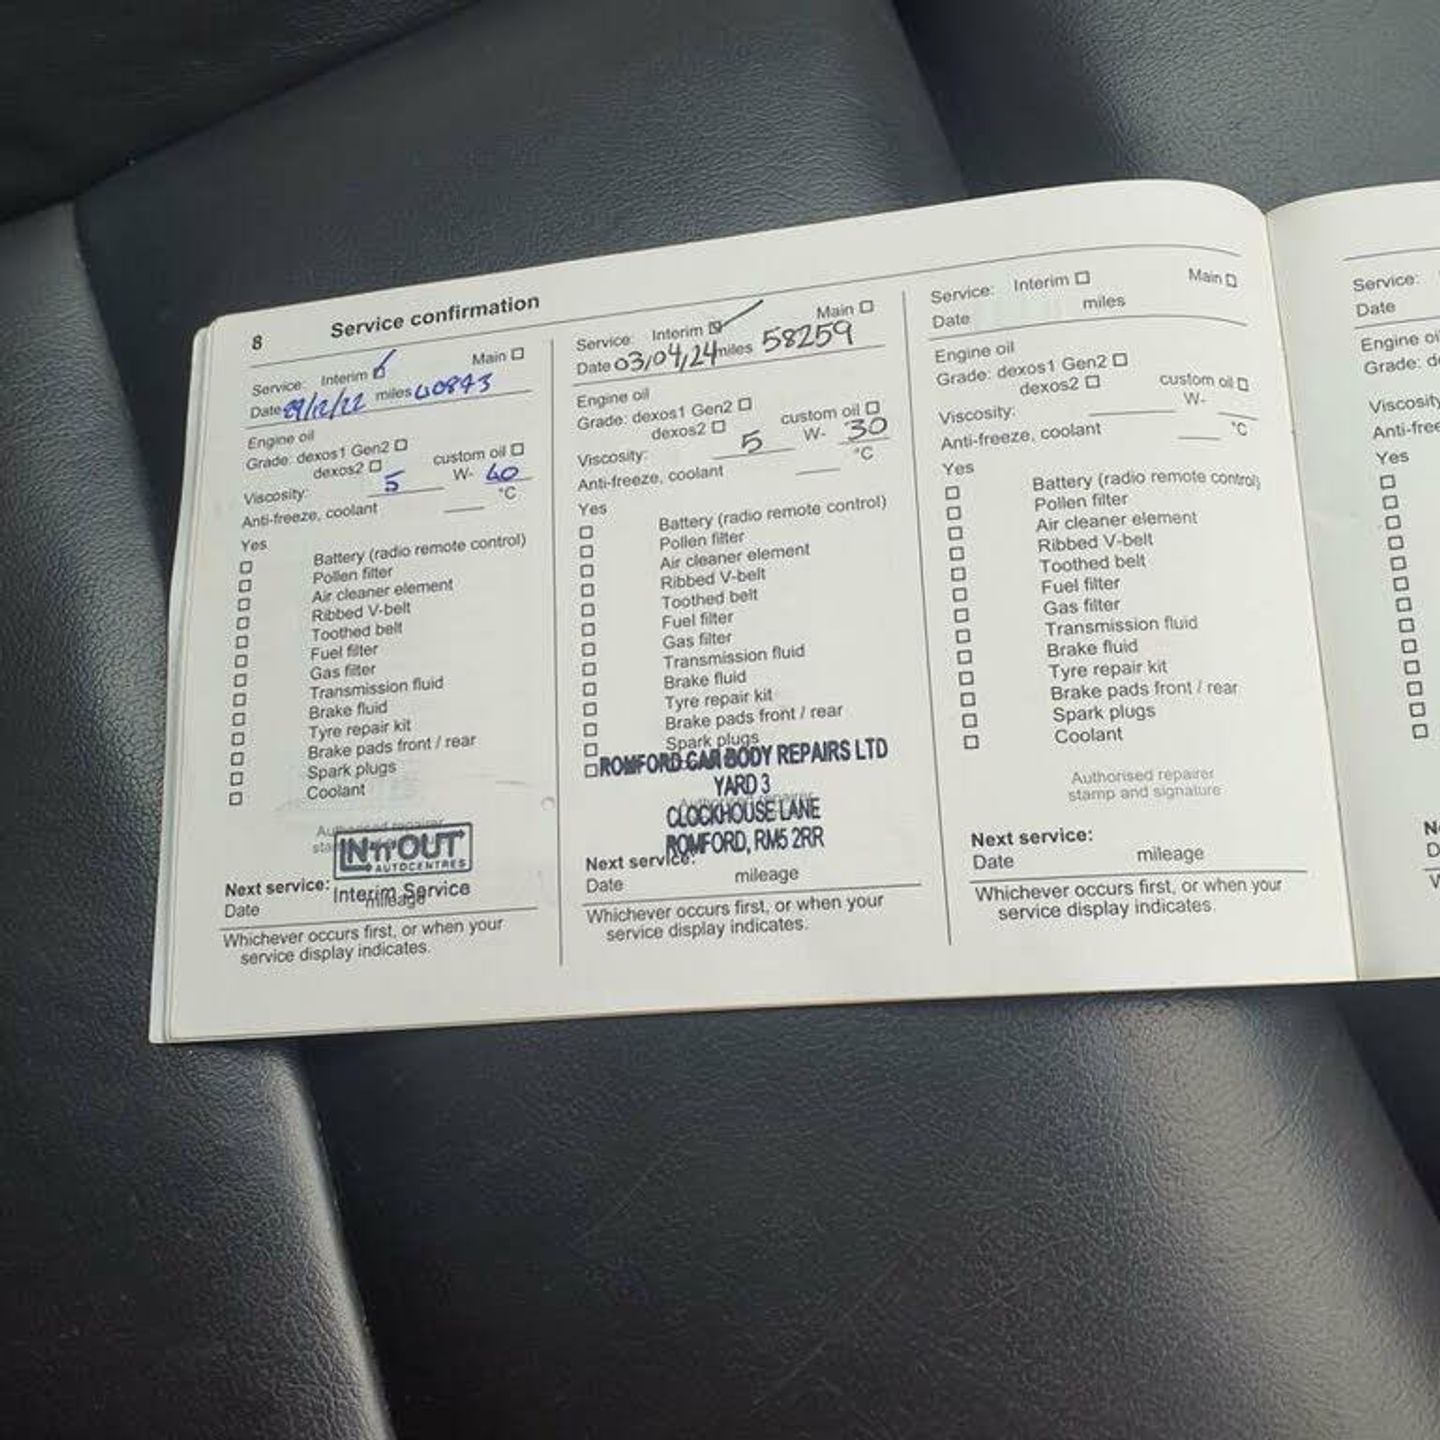 8 Service confirmation
Service: Interim Main
Date 29/12/22 miles 40893
Engine oil
Grade: dexos1 Gen2
dexos2 custom oil
Viscosity: 5 W- 40
Anti-freeze, coolant °C
Yes
Battery (radio remote control)
Pollen filter
Air cleaner element
Ribbed V-belt
Toothed belt
Fuel filter
Gas filter
Transmission fluid
Brake fluid
Tyre repair kit
Brake pads front / rear
Spark plugs
Coolant
Authorised repairer
IN'n'OUT
AUTOCENTRES
Next service: Interim Service
Date mileage
Whichever occurs first, or when your
service display indicates.
Service: Interim Main
Date 03/04/24 miles 58259
Engine oil
Grade: dexos1 Gen2
dexos2 custom oil
Viscosity: 5 W- 30
Anti-freeze, coolant °C
Yes
Battery (radio remote control)
Pollen filter
Air cleaner element
Ribbed V-belt
Toothed belt
Fuel filter
Gas filter
Transmission fluid
Brake fluid
Tyre repair kit
Brake pads front / rear
Spark plugs
ROMFORD CAR BODY REPAIRS LTD
YARD 3
CLOCKHOUSE LANE
ROMFORD, RM5 2RR
Next service:
Date mileage
Whichever occurs first, or when your
service display indicates.
Service: Interim Main
Date miles
Engine oil
Grade: dexos1 Gen2
dexos2 custom oil
Viscosity: W-
Anti-freeze, coolant °C
Yes
Battery (radio remote control)
Pollen filter
Air cleaner element
Ribbed V-belt
Toothed belt
Fuel filter
Gas filter
Transmission fluid
Brake fluid
Tyre repair kit
Brake pads front / rear
Spark plugs
Coolant
Authorised repairer
stamp and signature
Next service:
Date mileage
Whichever occurs first, or when your
service display indicates.
Service:
Date
Engine oi
Grade: d
Viscosity
Anti-free
Yes
N
D